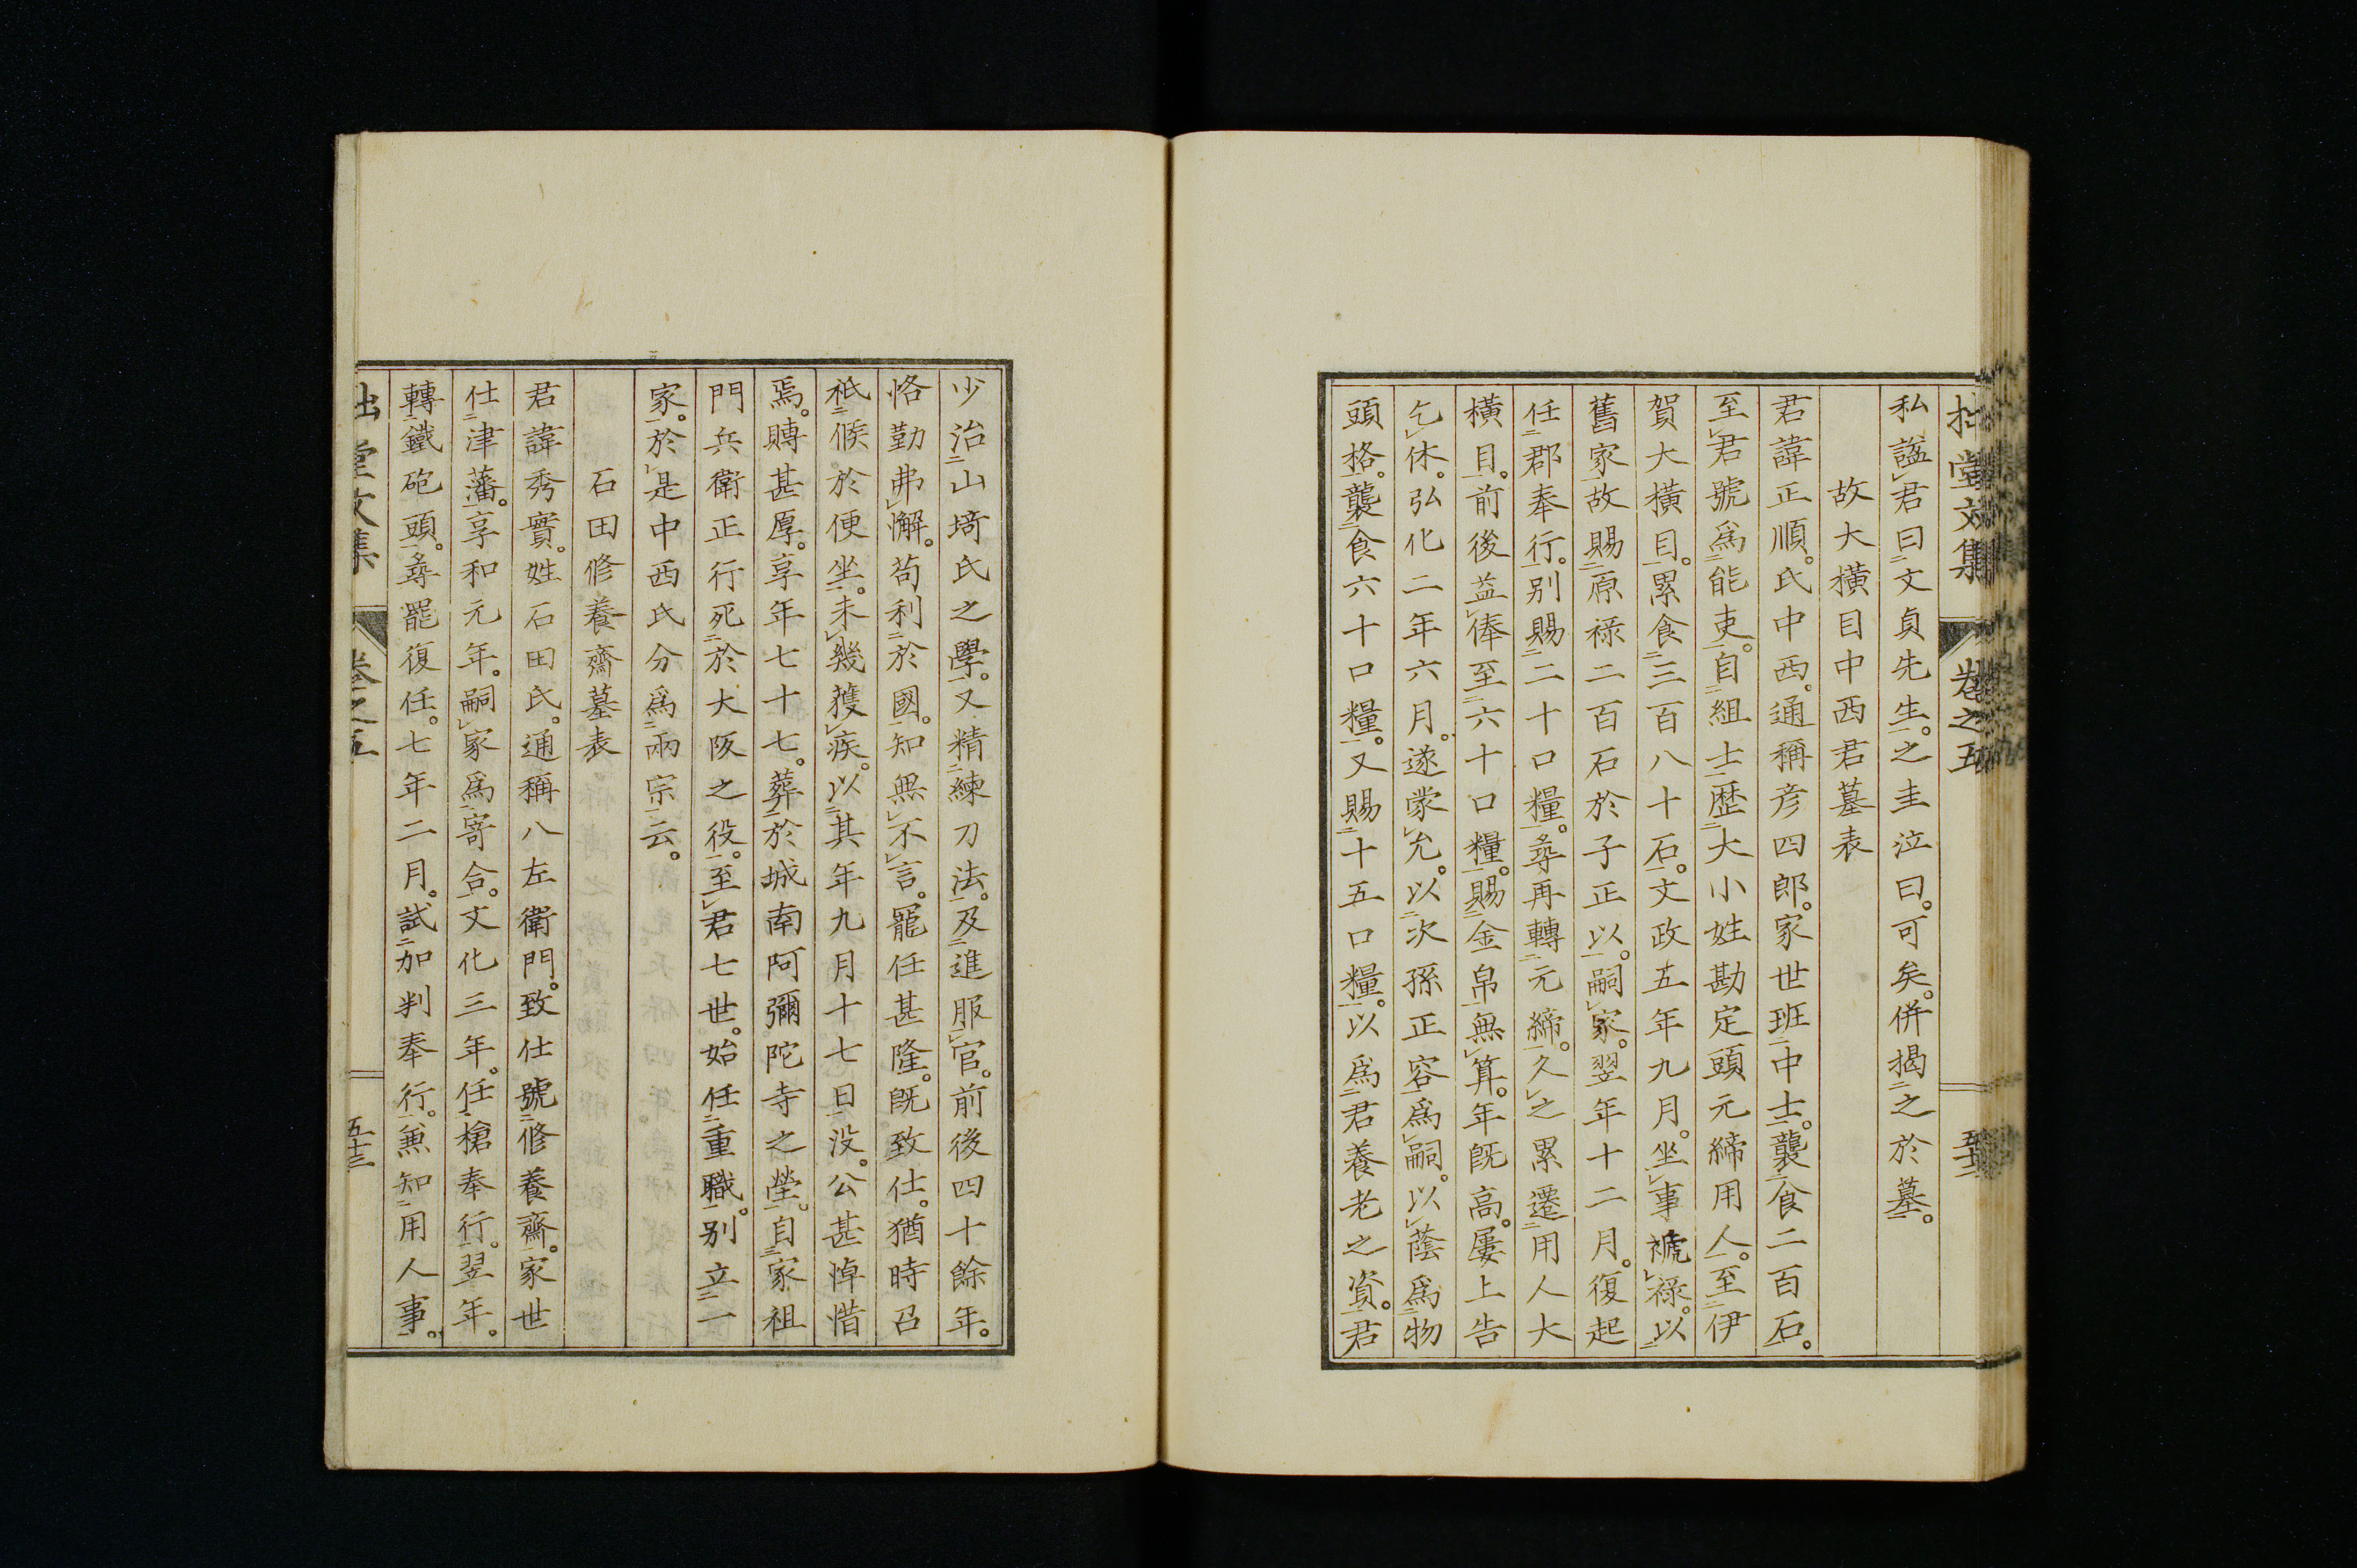 拙堂文集 卷之五 五十二
私諡君曰文貞先生。之圭泣曰。可矣。併揭之於墓。
故大橫目中西君墓表
君諱正順。氏中西。通稱彦四郎。家世班中士。襲食二百石。
至君號爲能吏。自組士歷大小姓勘定頭元締用人。至伊
賀大橫目。累食三百八十石。文政五年九月。坐事褫祿。以
舊家故賜原祿二百石於子正以。嗣家。翌年十二月。復起
任郡奉行。別賜二十口糧。尋再轉元締。久之累遷用人大
橫目。前後益俸至六十口糧。賜金帛無算。年既高。屢上告
乞休。弘化二年六月。遂蒙允。以次孫正容爲嗣。以蔭爲物
頭格。襲食六十口糧。又賜十五口糧。以爲君養老之資。君
少治山埼氏之學。又精練刀法。及進服官。前後四十餘年。
恪勤弗懈。苟利於國。知無不言。寵任甚隆。既致仕。猶時召
祗候於便坐。未幾獲疾。以其年九月十七日没。公甚悼惜
焉。賻甚厚。享年七十七。葬於城南阿彌陀寺之塋。自家祖
門兵衛正行死於大阪之役。至君七世。始任重職。別立一
家。於是中西氏分爲兩宗云。
石田修養齋墓表
君諱秀實。姓石田氏。通稱八左衛門。致仕號修養齋。家世
仕津藩。享和元年。嗣家爲寄合。文化三年。任槍奉行。翌年。
轉鐵砲頭。尋罷復任。七年二月。試加判奉行。兼知用人事。
拙堂文集 卷之五 五十三